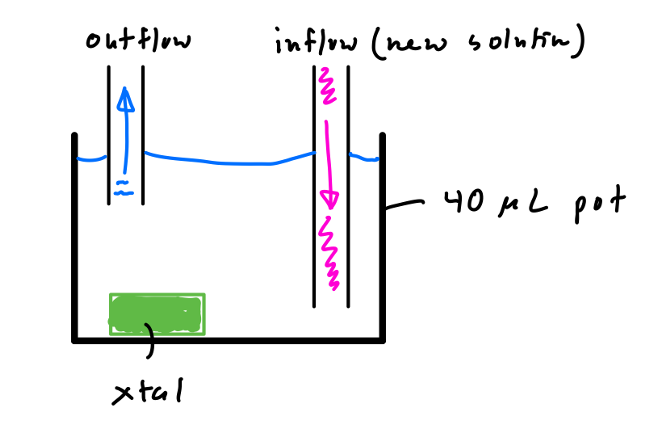 outflow
inflow (new solution)
40 μL pot
xtal